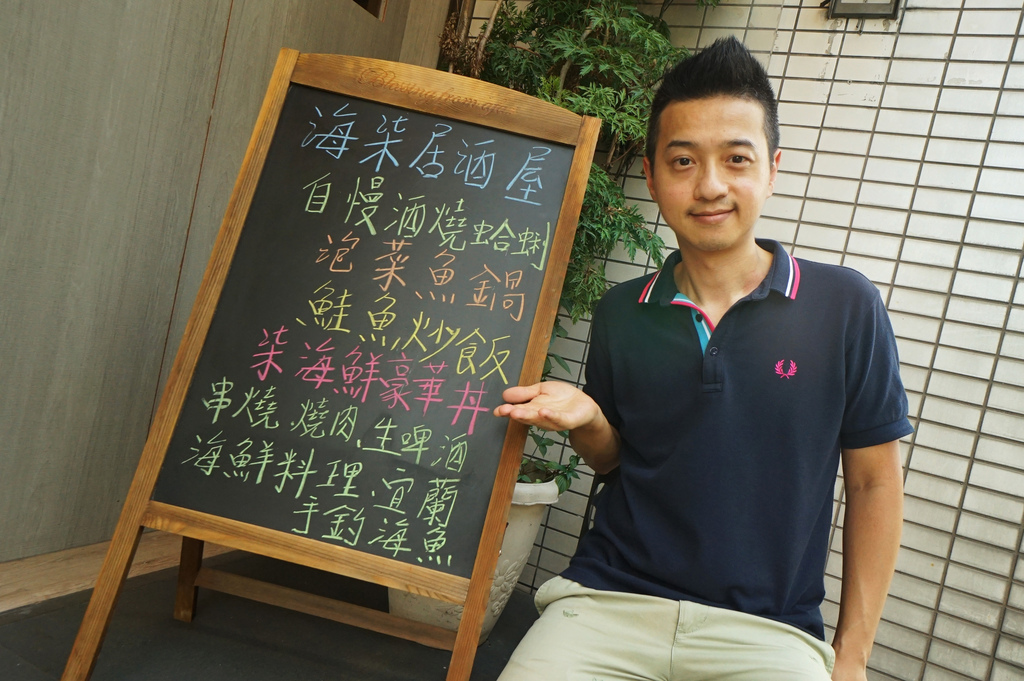 海柒居酒屋
自慢酒燒蛤蜊
泡菜魚鍋
鮭魚炒飯
柒海鮮豪華丼
串燒.燒肉.生啤酒
海鮮料理.宜蘭
手釣海魚